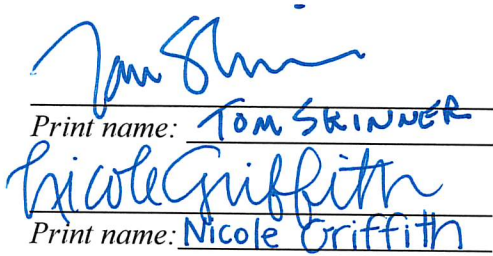 Tom Skinner
Print name: TOM SKINNER
Nicole Griffith
Print name: Nicole Griffith